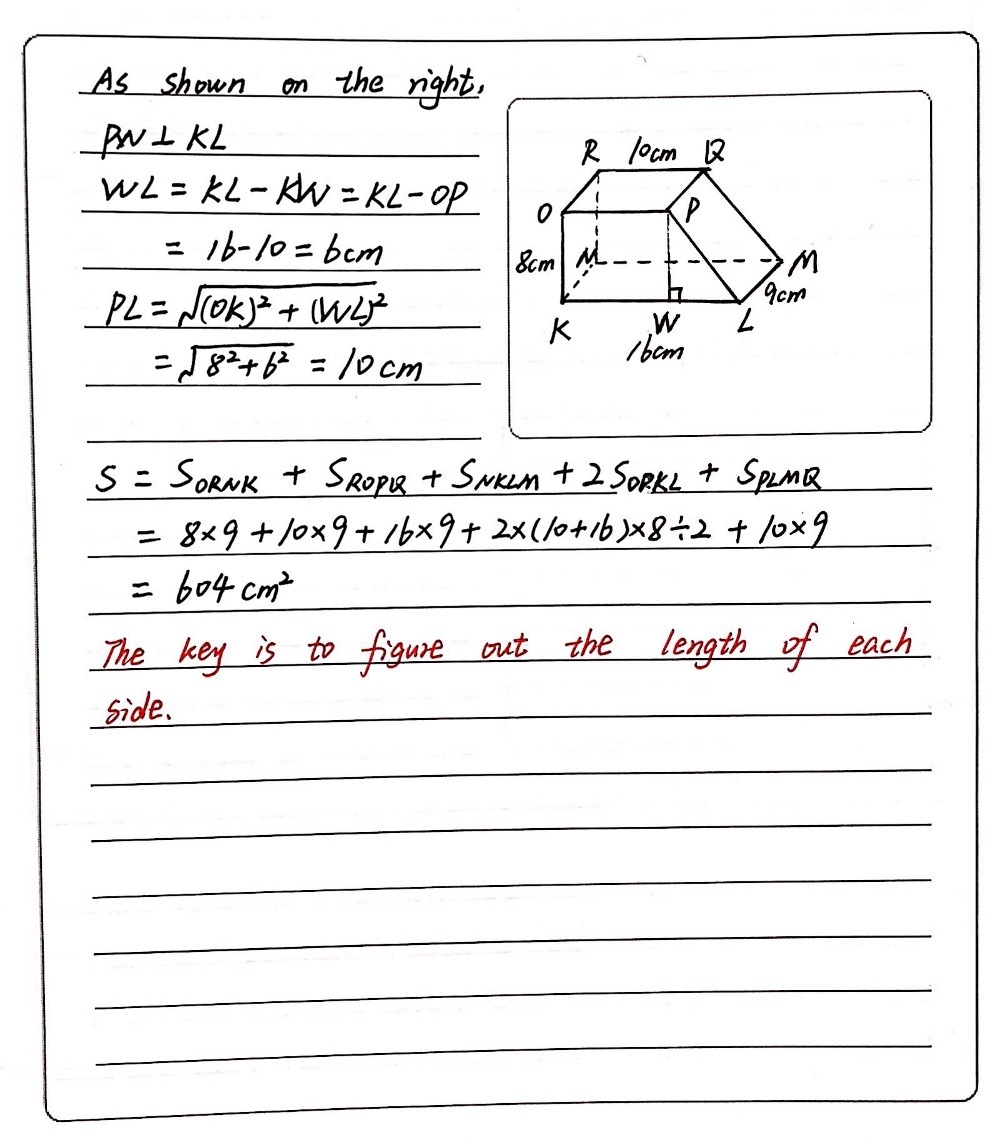 As shown on the right,
PW ⊥ KL
WL = KL - KW = KL - OP
= 16-10 = 6cm
PL = √(OK)² + (WL)²
= √8²+6² = 10cm
R 10cm Q
O P
8cm N M
9cm
K W L
16cm
S = SORNK + SROPQ + SNKLM + 2SOPKL + SPLMQ
= 8×9 + 10×9 + 16×9 + 2×(10+16)×8÷2 + 10×9
= 604 cm²
The key is to figure out the length of each
side.